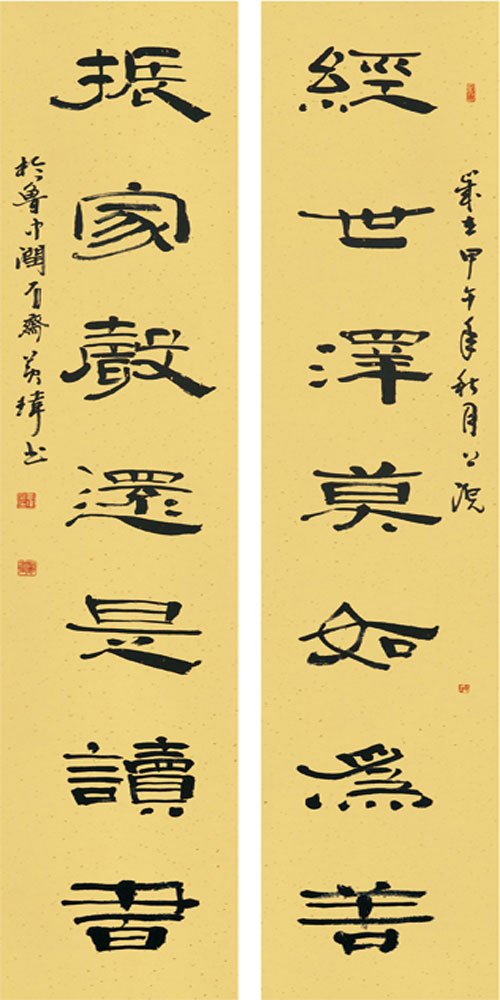 歲在甲午年秋月
經世澤莫如爲善
振家聲還是讀書
於魯中潤石齋
瑋書